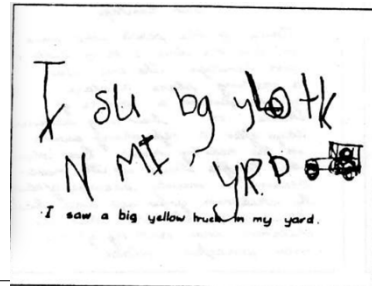 I su bg ylo tk
N MI, YRD
I saw a big yellow truck in my yard.